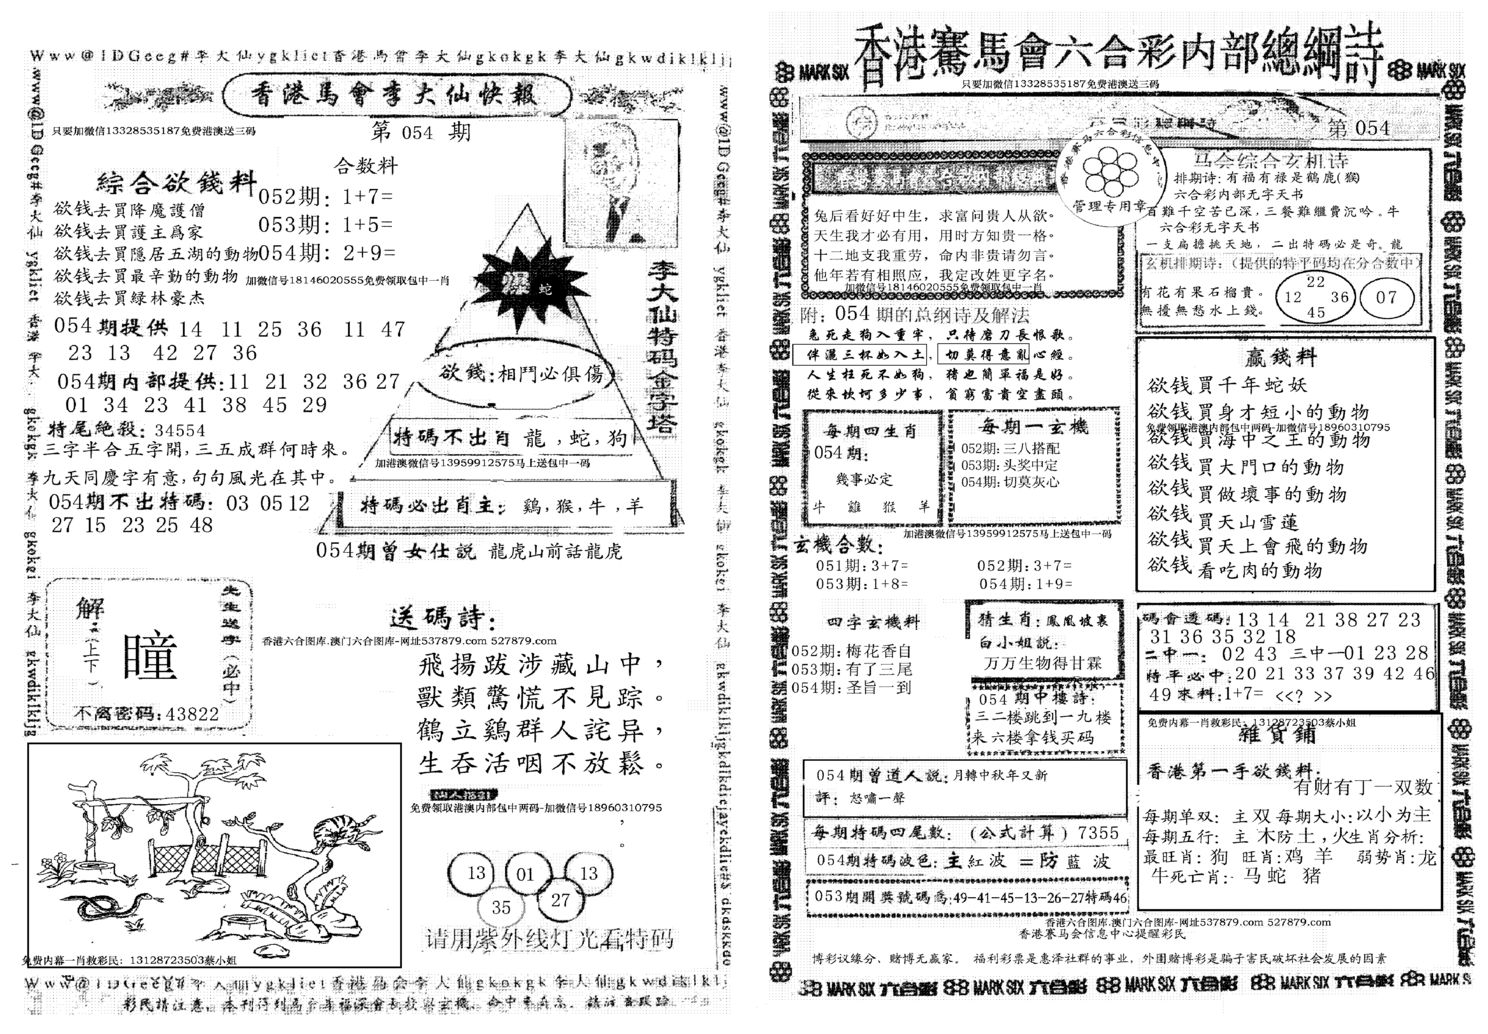 Www@1DGeeg#李大仙ygkliet香港馬會李大仙gkokgk李大仙gkwdiklklj
香港馬會李大仙快報
只要加微信13328535187免费港澳送三码
第 054 期
合数料
綜合欲錢料
052期: 1+7=
欲钱去買降魔護僧
053期: 1+5=
欲钱去買護主爲家
欲钱去買隱居五湖的動物
054期: 2+9=
欲钱去買最辛勤的動物
加微信号18146020555免费领取包中一肖
欲钱去買緑林豪杰
蛇
李大仙特码金字塔
054期提供 14 11 25 36 11 47
23 13 42 27 36
054期内部提供:11 21 32 36 27
01 34 23 41 38 45 29
特尾絶殺: 34554
三字半合五字開,三五成群何時來。
九天同慶字有意,句句風光在其中。
054期不出特碼: 03 05 12
27 15 23 25 48
欲錢:相鬥必俱傷
特碼不出肖 龍,蛇,狗
加港澳微信号13959912575马上送包中一码
特碼必出肖主: 鷄,猴,牛,羊
054期曾女仕説 龍虎山前話龍虎
解:(上下)
瞳
先生送字(必中)
不离密码:43822
送碼詩:
香港六合图库.澳门六合图库-网址537879.com 527879.com
飛揚跋涉藏山中,
獸類驚慌不見踪。
鶴立鷄群人詫异,
生吞活咽不放鬆。
免费领取港澳内部包中两码-加微信号18960310795
13 01 13
35 27
请用紫外线灯光看特码
免费内幕一肖救彩民: 13128723503蔡小姐
香港賽馬會六合彩内部總綱詩
MARK SIX
只要加微信13328535187免费港澳送三码
第 054
管理专用章
兔后看好好中生, 求富问贵人从欲。
天生我才必有用, 用时方知贵一格。
十二地支我重劳, 命内非贵请勿言。
他年若有相照应, 我定改姓更字名。
加微信号18146020555免费领取包中一肖
附: 054 期的总纲诗及解法
兔死走狗入重牢, 只待磨刀長恨歌。
伴灑三杯如入土, 切莫得意亂心經。
人生枉死不如狗, 猪也簡單福是好。
從來坎坷多少事, 貧窮富貴空盡頭。
马会综合玄机诗
排期诗: 有福有禄是鹤鹿(猴)
六合彩内部无字天书
百難千空苦已深,三餐難繼費沉吟。牛
六合彩无字天书
一支扁擔挑天地, 二出特碼必是奇。龍
玄机排期诗:(提供的特平码均在分合数中)
有花有果石榴貴。
無擾無愁水上錢。
22
12 36
45
07
每期四生肖
054期:
幾事必定
牛 雞 猴 羊
每期一玄機
052期:三八搭配
053期:头奖中定
054期:切莫灰心
加港澳微信号13959912575马上送包中一码
玄機合數:
051期:3+7= 052期:3+7=
053期:1+8= 054期:1+9=
赢錢料
欲钱買千年蛇妖
欲钱買身才短小的動物
免费领取港澳内部包中两码-微信号18960310795
欲钱買海中之王的動物
欲钱買大門口的動物
欲钱買做壞事的動物
欲钱買天山雪蓮
欲钱買天上會飛的動物
欲钱看吃肉的動物
四字玄機料
052期:梅花香自
053期:有了三尾
054期:圣旨一到
猜生肖:鳳凰坡裏
白小姐説:
万万生物得甘霖
054 期中樓詩:
三二楼跳到一九楼
来六楼拿钱买码
碼會透碼:13 14 21 38 27 23
31 36 35 32 18
二中一: 02 43 三中一01 23 28
特平必中:20 21 33 37 39 42 46
49來料:1+7= <<? >>
054期曾道人説:月轉中秋年又新
評: 怒嘯一聲
每期特碼四尾數: (公式計算) 7355
054期特碼波色:主紅波 =防藍波
053期開獎號碼爲:49-41-45-13-26-27特碼46
免费内幕一肖救彩民: 13128723503蔡小姐
雜貨鋪
香港第一手欲錢料:
有财有丁一双数
每期单双: 主双 每期大小:以小为主
每期五行: 主木防土,火生肖分析:
最旺肖: 狗 旺肖:鸡 羊 弱势肖:龙
牛死亡肖: 马 蛇 猪
香港六合图库.澳门六合图库-网址537879.com 527879.com
香港赛马会信息中心提醒彩民
博彩议缘分、赌博无赢家。 福利彩票是惠泽社群的事业, 外围赌博彩是骗子害民破坏社会发展的因素